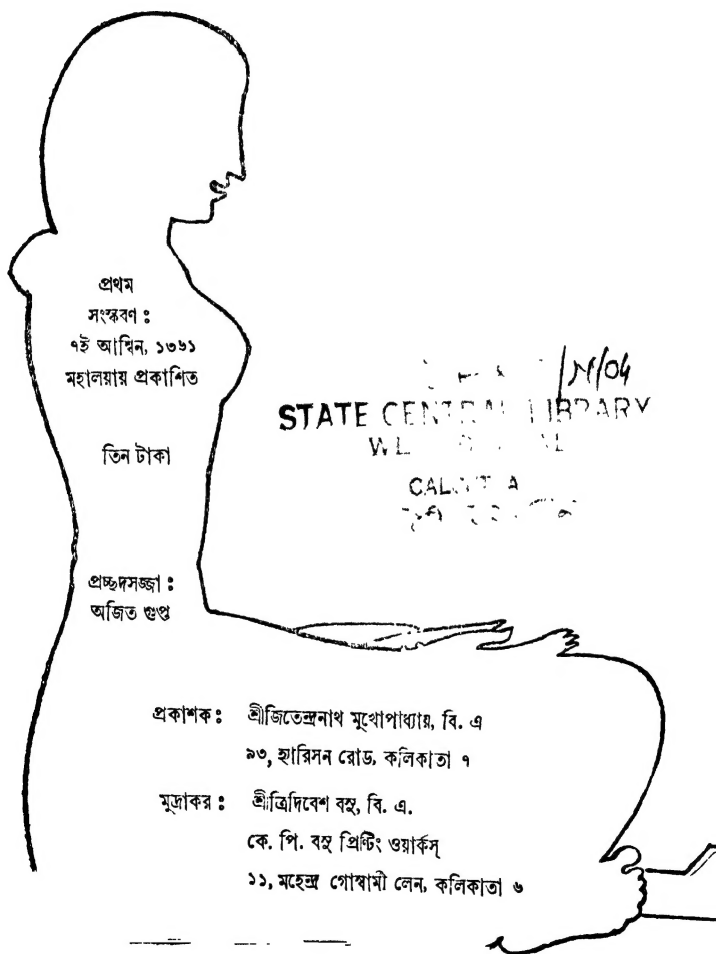 প্রথম
সংস্করণ :
৭ই আশ্বিন, ১৩৬১
মহালয়ায় প্রকাশিত
তিন টাকা
প্রচ্ছদসজ্জা :
অজিত গুপ্ত
/N/04
STATE CENTRAL LIBRARY
প্রকাশক : শ্রীজিতেন্দ্রনাথ মুখোপাধ্যায়, বি. এ
৯৩, হ্যারিসন রোড, কলিকাতা ৭
মুদ্রাকর : শ্রীত্রিদিবেশ বসু, বি. এ.
কে. পি. বসু প্রিন্টিং ওয়ার্কস্
১১, মহেন্দ্র গোস্বামী লেন, কলিকাতা ৬